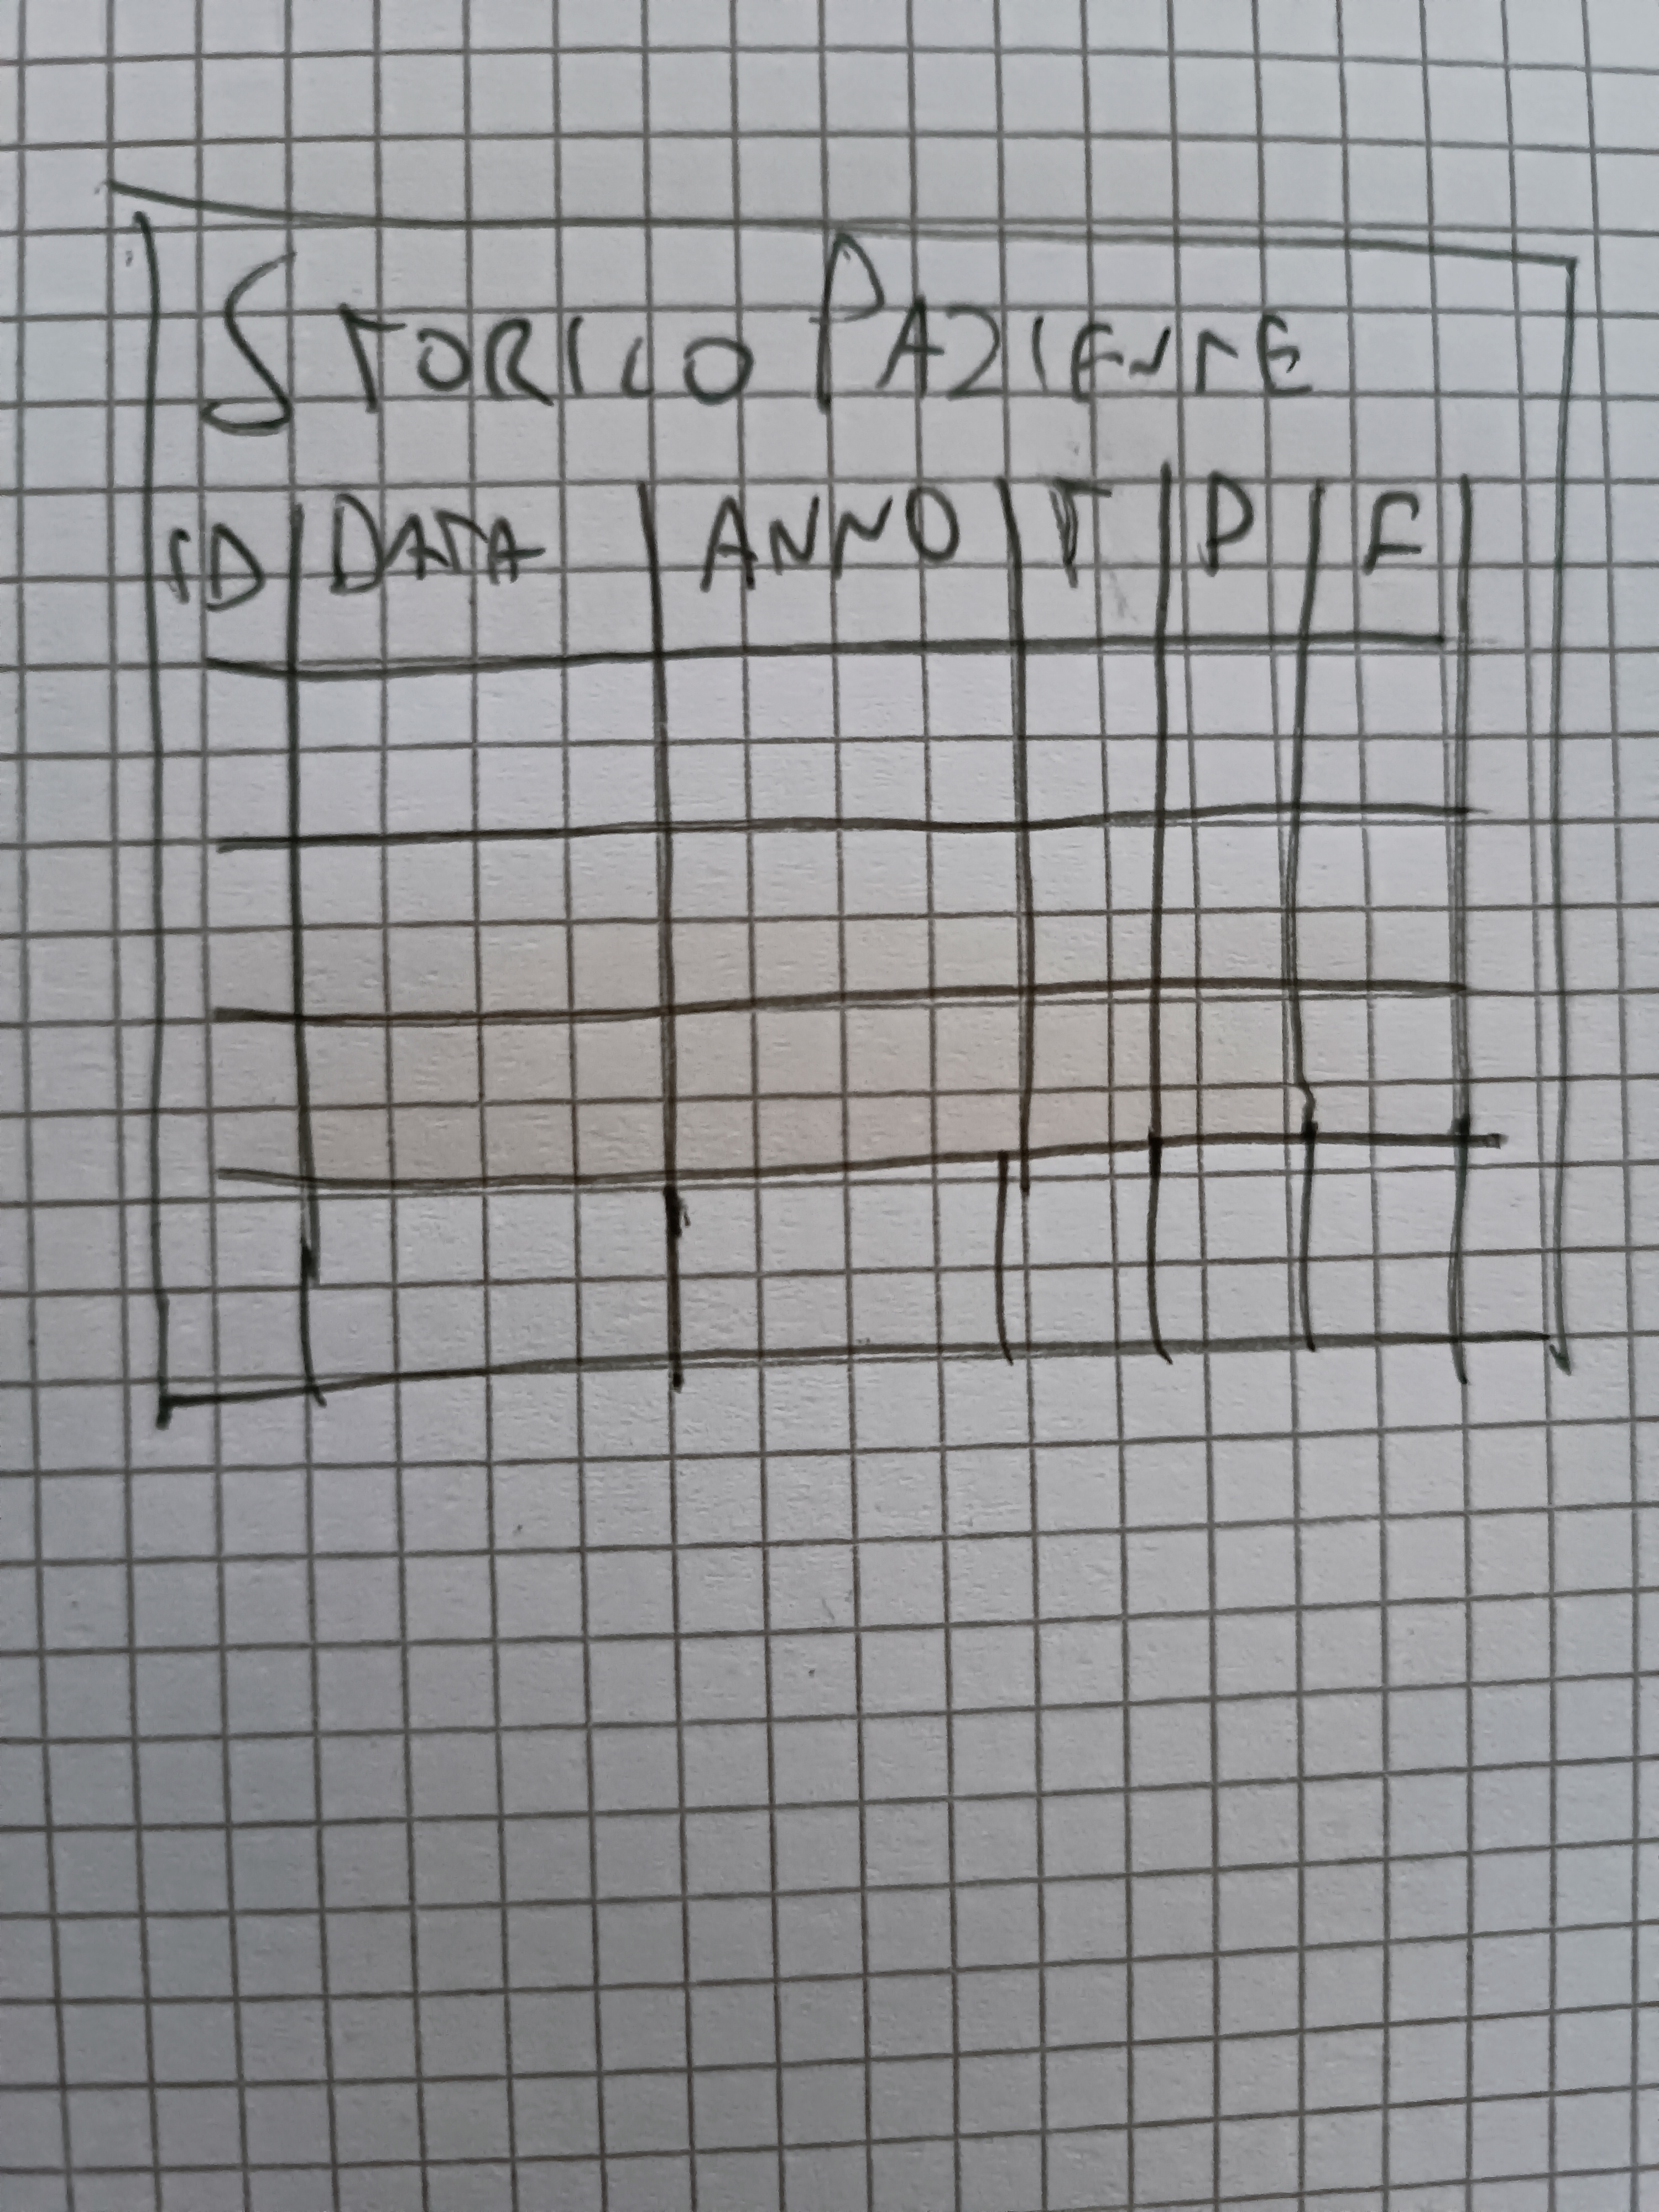 STORICO PAZIENTE
ID DATA ANNO T P F